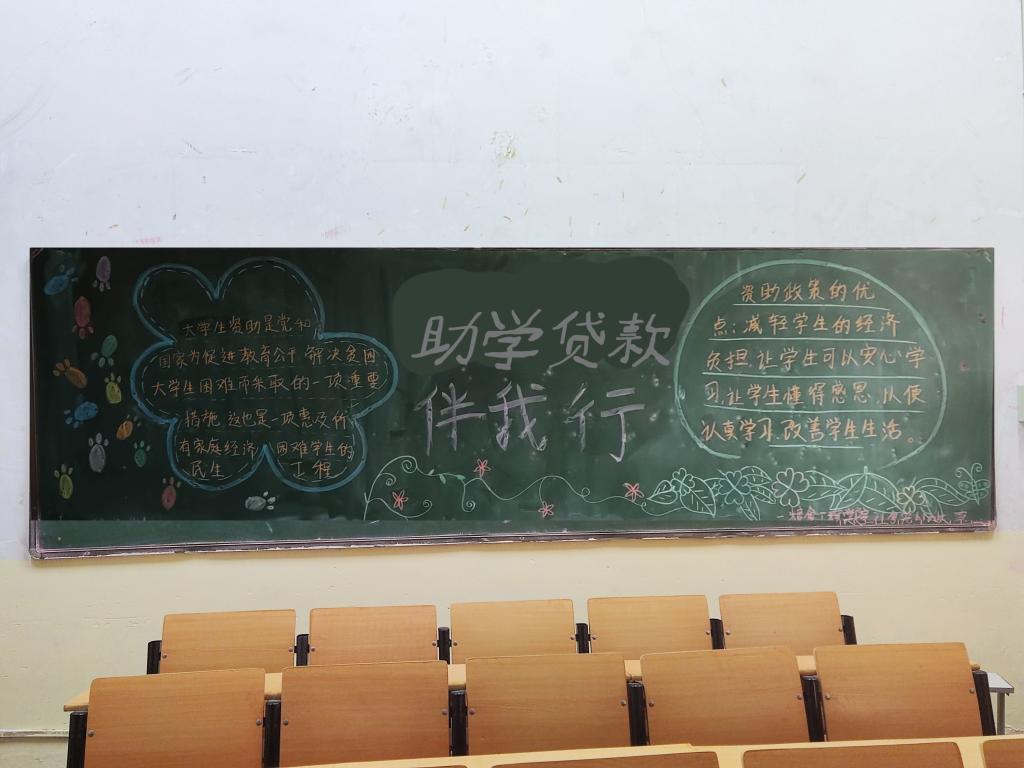 大学生资助是党和
国家为促进教育公平,解决贫困
大学生困难而采取的一项重要
措施,这也是一项惠及所
有家庭经济 困难学生的
民生 工程
助学贷款
伴我行
资助政策的优
点:减轻学生的经济
负担,让学生可以安心学
习,让学生懂得感恩,从便
认真学习,改善学生生活。